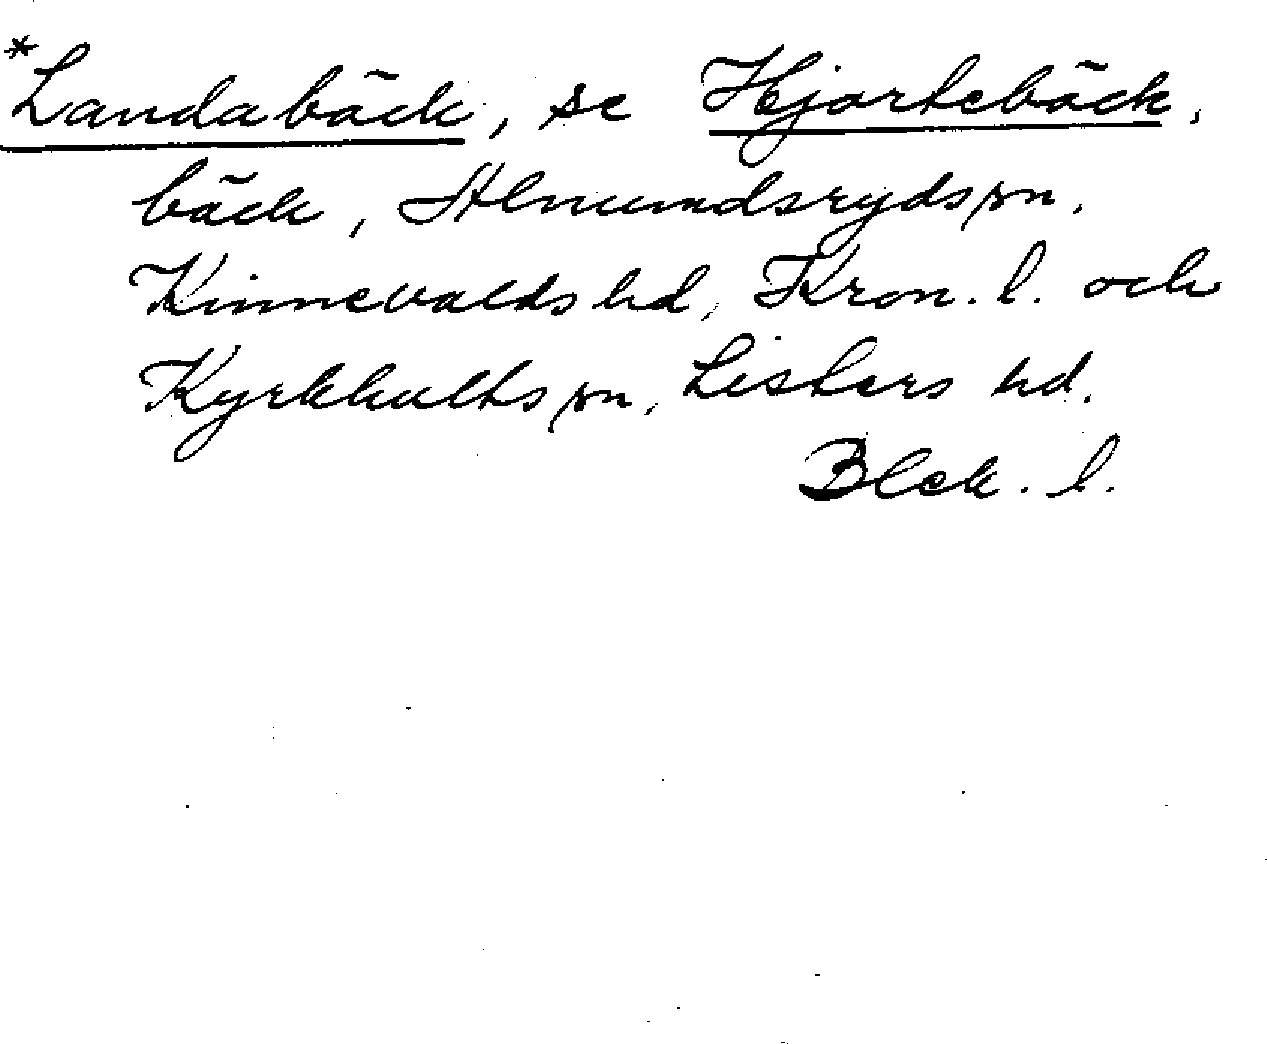 *Landabäck, se Hjortebäck,
bäck, Almundsryds sn,
Kinnevalds hd, Kron. l. och
Kyrkhults sn, Listers hd.
Blek. l.